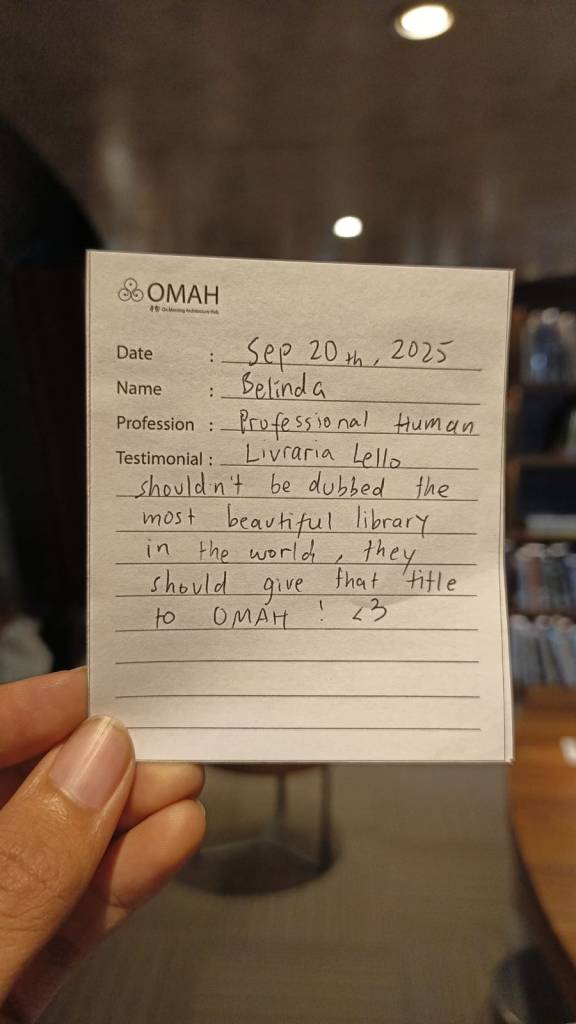 OMAH
On Morning Architecture Hub
Date : Sep 20th, 2025
Name : Belinda
Profession : Professional Human
Testimonial : Livraria Lello
shouldn't be dubbed the
most beautiful library
in the world, they
should give that title
to OMAH! <3